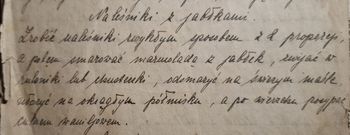 Naleśniki z jabłkami.
Zrobić naleśniki zwykłym sposobem z 2 proporcji,
a potem smarować marmoladą z jabłek, zwijać w
rulaniki lub chusteczki, odsmażyć na świeżym maśle
ułożyć na okrągłym półmisku, a po wierzchu posypać
cukrem waniljowem.